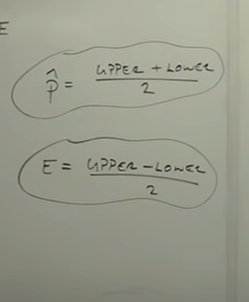 E
p̂ = UPPER + LOWER
2
E = UPPER - LOWER
2